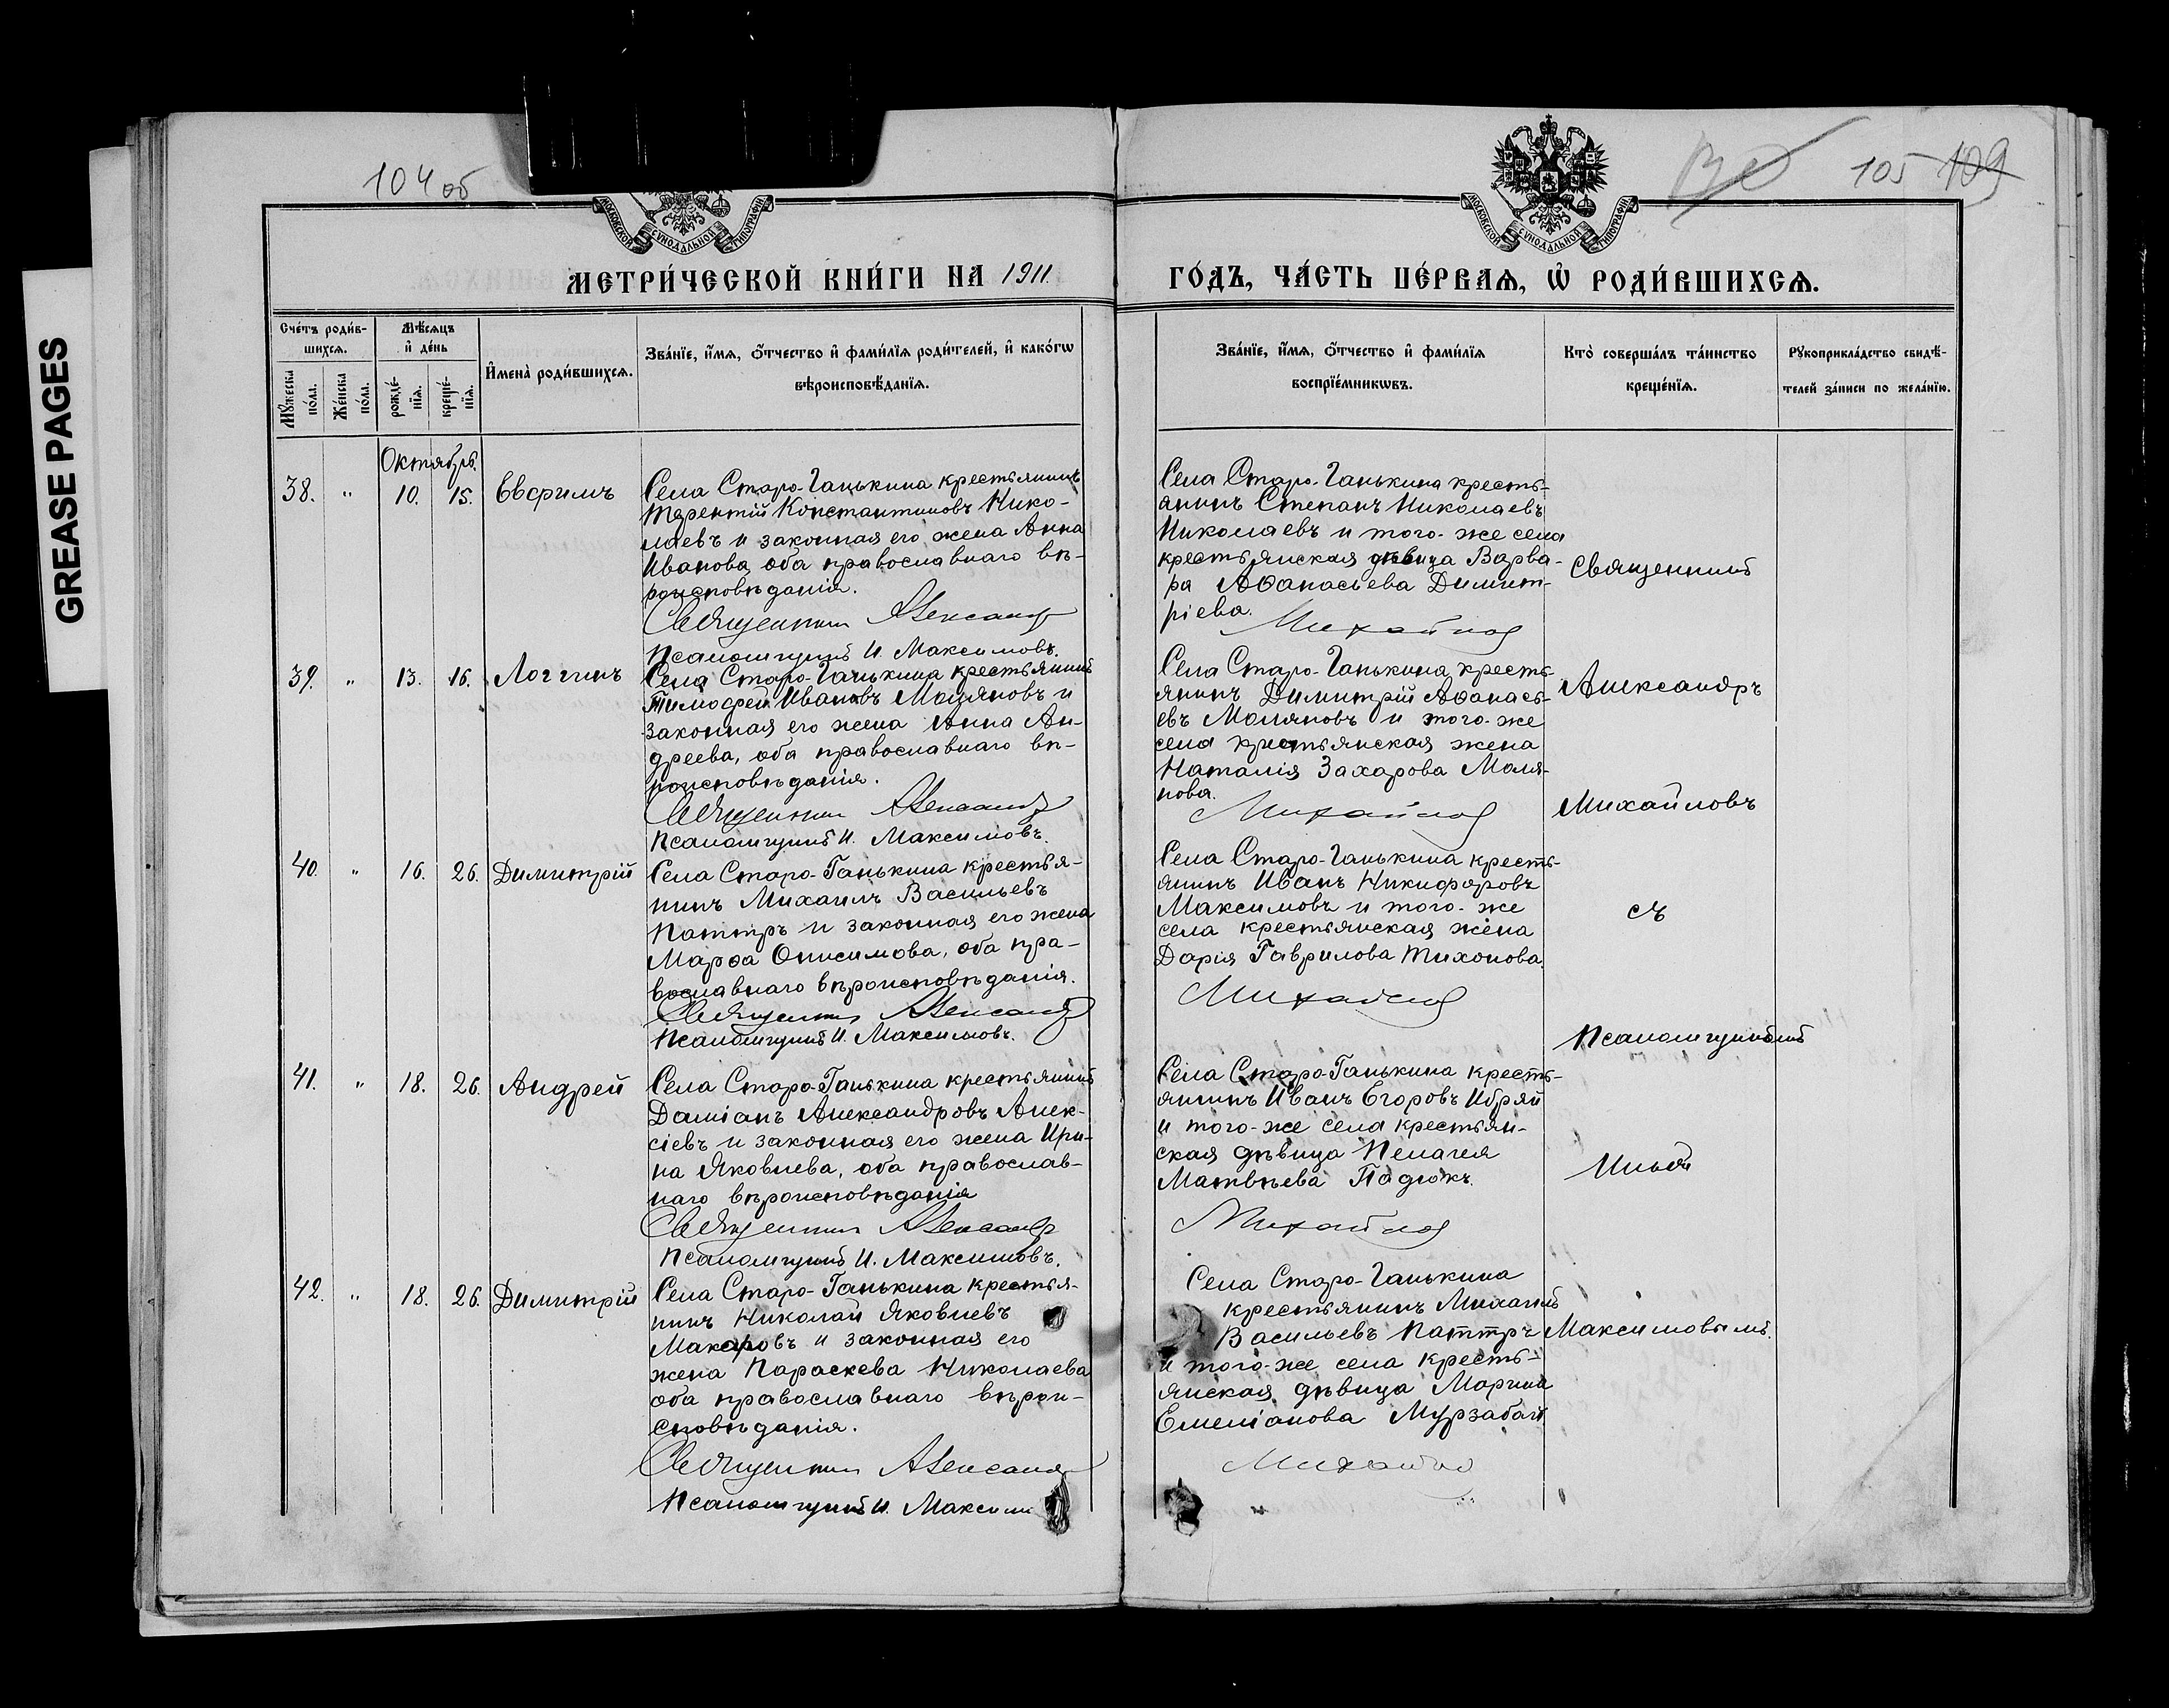 GREASE PAGES
104 об
105 109
МОСКОВСКОЙ СѴНОДАЛЬНОЙ ТИПОГРАФІИ
МОСКОВСКОЙ СѴНОДАЛЬНОЙ ТИПОГРАФІИ
МЕТРИ́ЧЕСКОЙ КНИ́ГИ НА 1911.
ГО́ДЪ, ЧА́СТЬ ПЕ́РВАѦ, Ѡ҆ РОДИ́ВШИХСѦ.
Сче́тъ роди́в-
шихсѧ.
Мꙋ́жеска
по́ла.
Же́нска
по́ла.
Мѣ́сѧцъ
и҆ де́нь
рожде́-
нїѧ.
креще́-
нїѧ.
И҆мена̀ роди́вшихсѧ.
Зва́нїе, и҆́мѧ, ѻ҆́тчество и҆ фами́лїѧ роди́телей, и҆ како́гѡ
вѣроисповѣ́данїѧ.
Зва́нїе, и҆́мѧ, ѻ҆́тчество и҆ фами́лїѧ
воспрїе́мникѡвъ.
Кто̀ соверша́лъ та́инство
креще́нїѧ.
Рꙋкоприкла́дство свидѣ́-
телей за́писи по жела́нїю.
Октябрь.
38. " 10. 15. Евфимъ
Села Старо-Ганькина крестьянинъ
Терентій Константиновъ Нико-
лаевъ и законная его жена Анна
Иванова, оба православнаго вѣ-
роисповѣданія.
Священникъ Александр
Псаломщикъ И. Максимовъ.
Села Старо-Ганькина кресть-
янинъ Степанъ Николаевъ
Николаевъ и того-же села
крестьянская дѣвица Варва-
ра Аѳанасьева Димит-
ріева.
Михайлов
39. " 13. 16. Логгинъ
Села Старо-Ганькина крестьянинъ
Тимофей Ивановъ Моляновъ и
законная его жена Анна Ан-
дреева, оба православнаго вѣ-
роисповѣданія.
Священникъ Александр
Псаломщикъ И. Максимовъ.
Села Старо-Ганькина кресть-
янинъ Димитрій Аѳанась-
евъ Моляновъ и того-же
села крестьянская жена
Наталія Захарова Моля-
нова.
Михайлов
40. " 16. 26. Димитрій
Села Старо-Ганькина крестья-
нинъ Михаилъ Васильевъ
Паттръ и законная его жена
Марѳа Онисимова, оба пра-
вославнаго вѣроисповѣданія.
Священникъ Александр
Псаломщикъ И. Максимовъ.
Села Старо-Ганькина кресть-
янинъ Иванъ Никифоровъ
Максимовъ и того-же
села крестьянская жена
Дарія Гаврилова Тихонова.
Михайлов
41. " 18. 26. Андрей
Села Старо-Ганькина крестьянинъ
Даміанъ Александровъ Алек-
сіевъ и законная его жена Ири-
на Яковлева, оба православ-
наго вѣроисповѣданія
Священникъ Александр
Псаломщикъ И. Максимовъ.
Села Старо-Ганькина кресть-
янинъ Иванъ Егоровъ Ибряй
и того-же села крестьян-
ская дѣвица Пелагея
Матвѣева Падюкъ.
Михайлов
42. " 18. 26. Димитрій
Села Старо-Ганькина крестья-
нинъ Николай Яковлевъ
Макаровъ и законная его
жена Параскева Николаева
оба православнаго вѣрои-
сповѣданія.
Священникъ Александр
Псаломщикъ И. Максим
Села Старо-Ганькина
крестьянинъ Михаилъ
Васильевъ Паттръ
и того-же села кресть-
янская дѣвица Марина
Емеліанова Мурзабай
Михайлов
Священникъ
Александръ
Михайловъ
съ
Псаломщикомъ
Ильей
Максимовымъ.